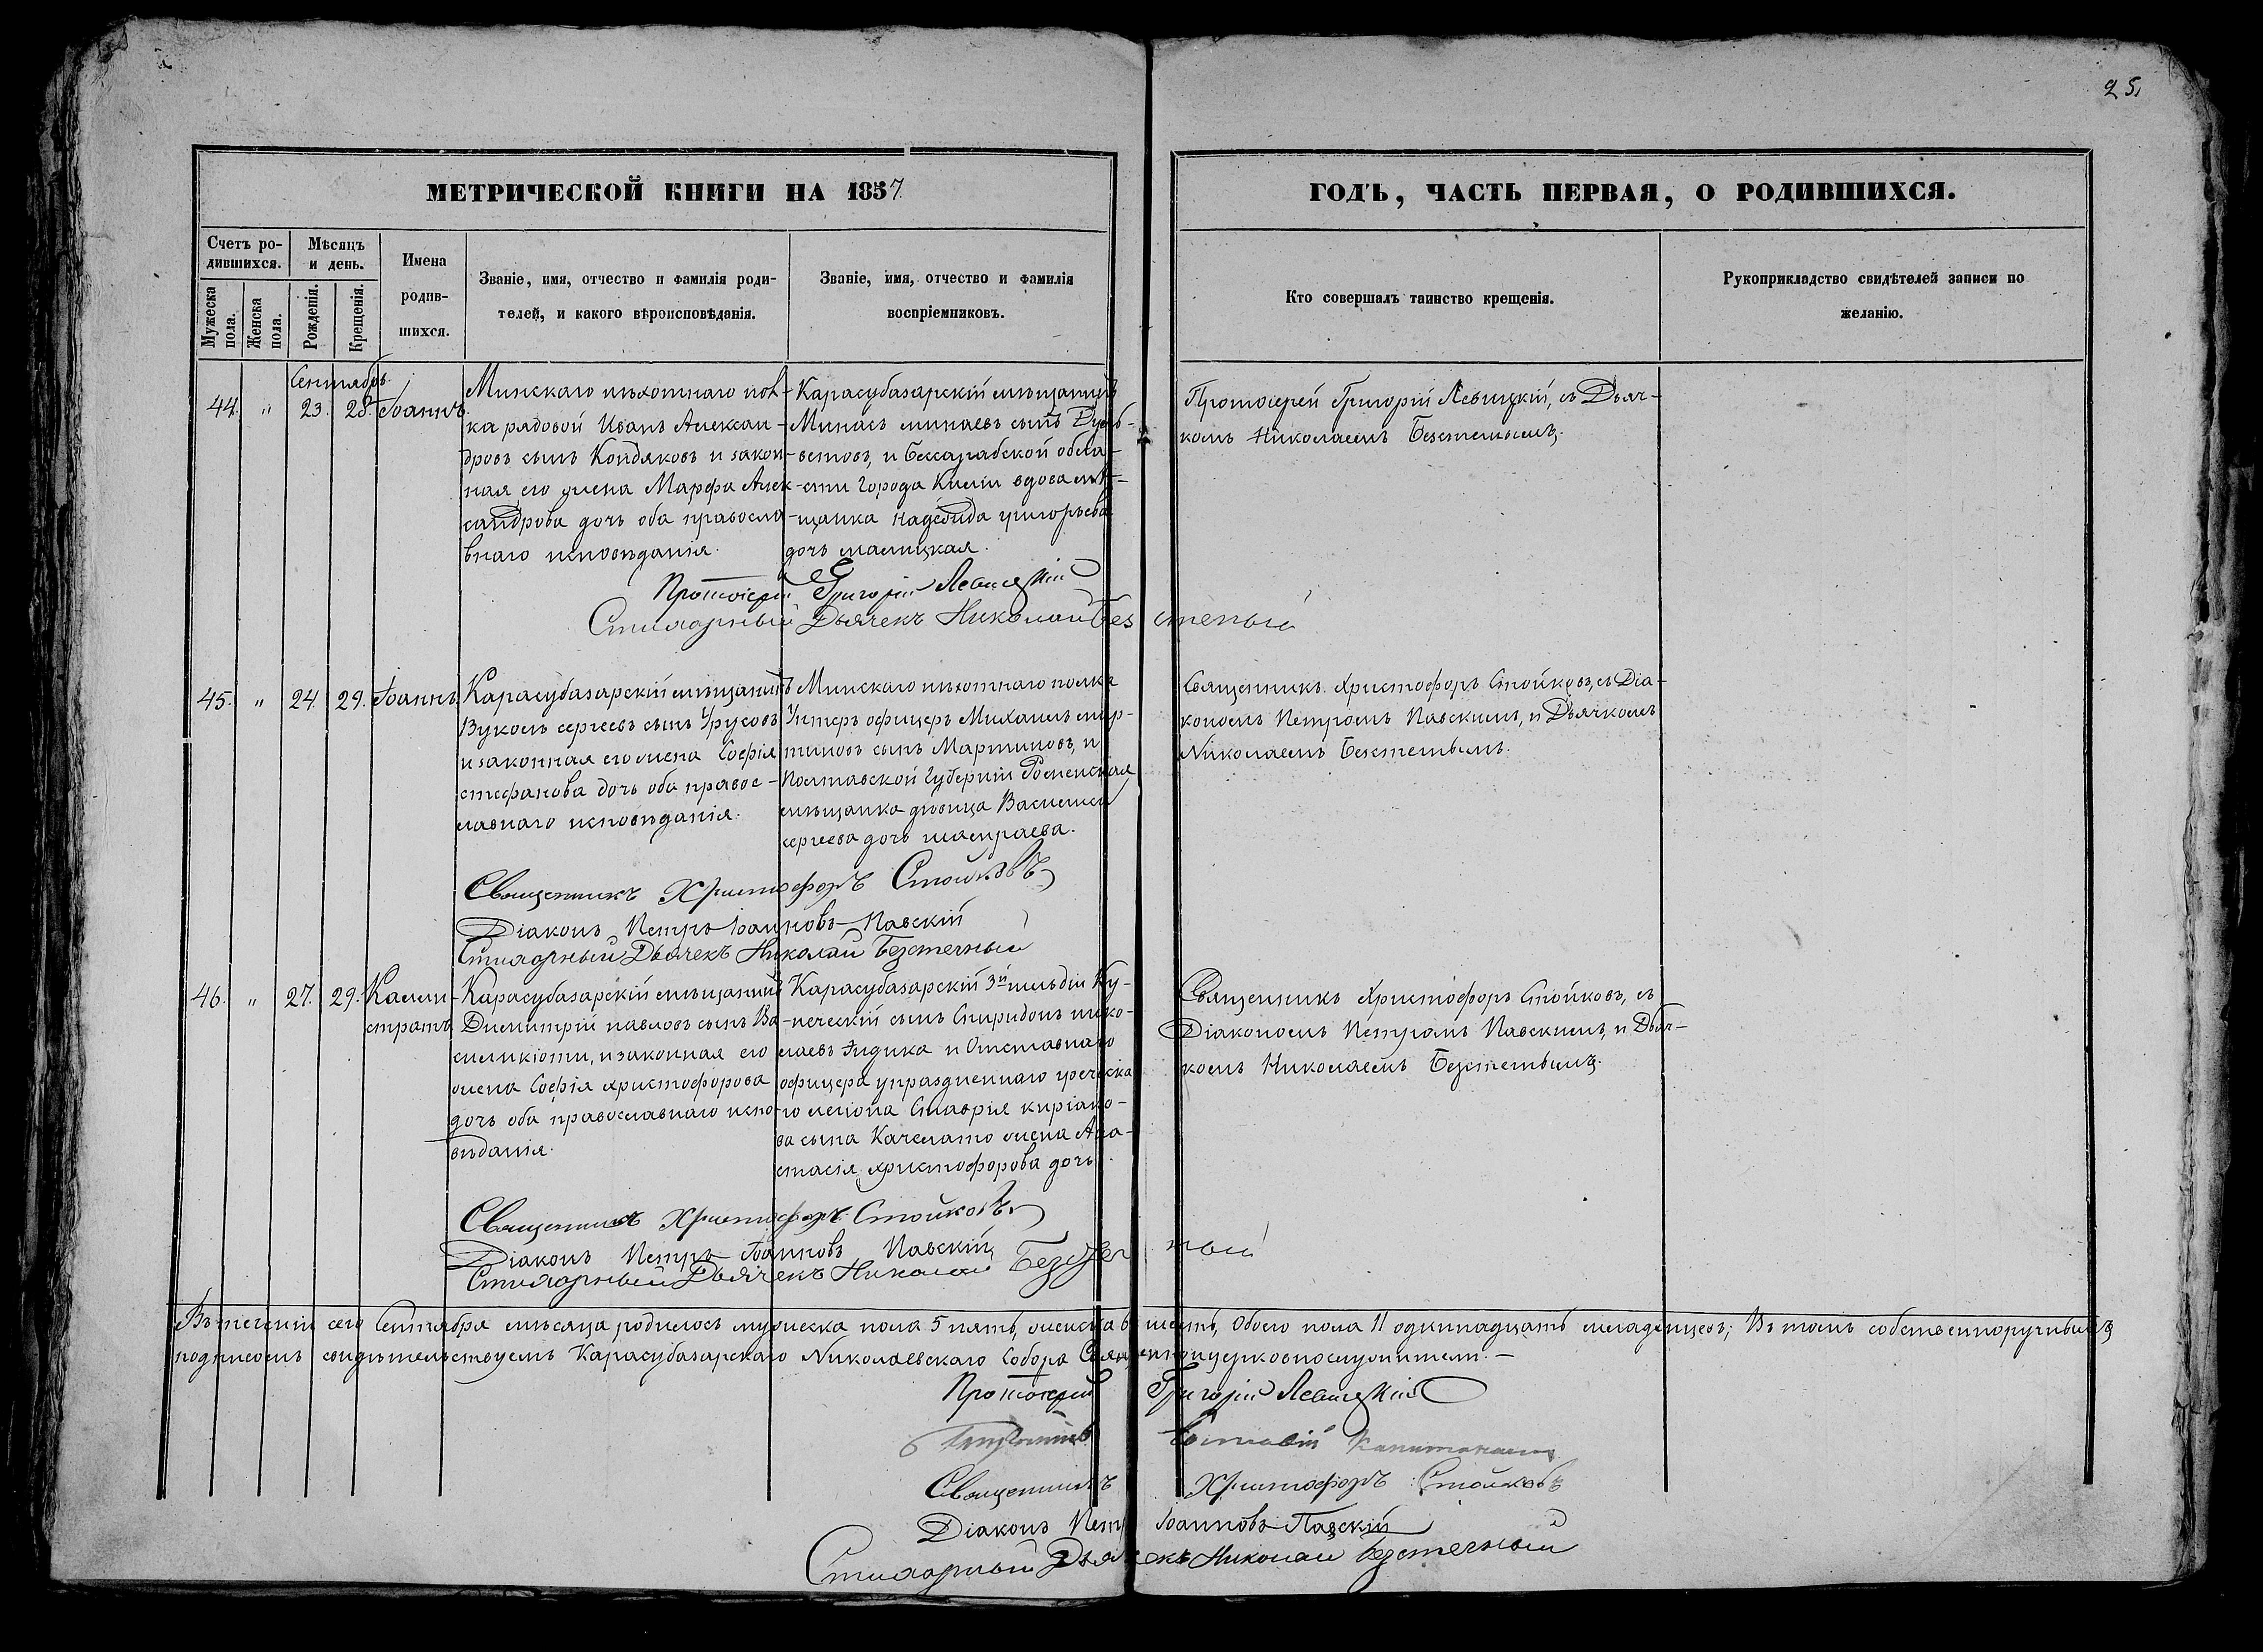 25.
МЕТРИЧЕСКОЙ КНИГИ НА 1857.
ГОДЪ, ЧАСТЬ ПЕРВАЯ, О РОДИВШИХСЯ.
Счетъ ро-
дившихся.
Мѣсяцъ
и день.
Мужеска пола.
Женска пола.
Рожденія.
Крещенія.
Имена
родив-
шихся.
Званіе, имя, отчество и фамилія роди-
телей, и какого вѣроисповѣданія.
Званіе, имя, отчество и фамилія
воспріемниковъ.
Кто совершалъ таинство крещенія.
Рукоприкладство свидѣтелей записи по
желанію.
Сентябрь.
44. " 23. 28. Іоаннъ.
Минскаго пѣхотнаго пол-
ка рядовой Иванъ Алексан-
дровъ сынъ Кондяковъ и закон-
ная его жена Марфа Алек-
сандрова дочь оба правосла-
внаго исповѣданія.
Карасубазарскій мѣщанинъ
Минасъ минаевъ сынъ
и Бессарабской обла-
сти города Киліи вдова мѣ-
щанка надежда григорьева
дочь малицкая.
Протоіерей Григорій Левицкій, съ Дьяч-
комъ Николаемъ Безстечнымъ.
Протоіерей Григорій Левицкій
Стихарный Дьячекъ Николай Безстечный
45. " 24. 29. Іоаннъ.
Карасубазарскій мѣщанинъ
Вуколъ сергеевъ сынъ Урусовъ
и законная его жена Софія
стефанова дочь оба правос-
лавнаго исповѣданія.
Минскаго пѣхотнаго полка
Унтеръ офицеръ Михаилъ мар-
тиновъ сынъ Мартиновъ, и
Полтавской Губерніи Роменская
мѣщанка дѣвица Василиса
сергеева дочь шамраева.
Священникъ Христофоръ Стойковъ, съ Діа-
кономъ Петромъ Павскимъ, и Дьячкомъ
Николаемъ Безстечнымъ.
Священникъ Христофоръ Стойковъ
Діаконъ Петръ Іоанновъ Павскій
Стихарный Дьячекъ Николай Безстечный
46. " 27. 29. Калли-
стратъ
Карасубазарскій мѣщанинъ
Димитрій павловъ сынъ Ва-
силикіоти, и законная его
жена Софія христофорова
дочь оба православнаго испо-
вѣданія.
Карасубазарскій 3й гильдіи Ку-
печескій сынъ Спиридонъ нико-
лаевъ и Отставнаго
офицера упраздненнаго греческа
го легіона Ставрія киріако-
ва сына Качелато жена Ана-
стасія христофорова дочь.
Священникъ Христофоръ Стойковъ, съ
Діакономъ Петромъ Павскимъ, и Дьяч-
комъ Николаемъ Безстечнымъ.
Священникъ Христофоръ Стойковъ
Діаконъ Петръ Іоанновъ Павскій
Стихарный Дьячекъ Николай Безстечный
Въ теченіи сего Сентября мѣсяца родилось мужеска пола 5 пять, женска 6 шесть, Обоего пола 11 одиннадцать младенцевъ; Въ томъ собственноручнымъ
подписомъ свидѣтельствуемъ Карасубазарскаго Николаевскаго Собора Священноцерковнослужители.—
Протоіерей Григорій Левицкій
Священникъ Христофоръ Стойковъ
Діаконъ Петръ Іоанновъ Павскій
Стихарный Дьячекъ Николай Безстечный